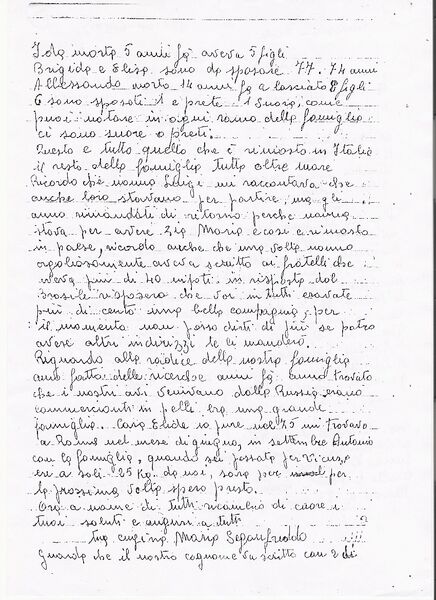 Ida morta 5 anni fa aveva 5 figli
Brigida e Elisa sono da sposare 77. 74 anni
Allessando morto 14 anni fa a lasciato 8 figli
6 sono sposati 1 e prete 1 Suora, come
puoi notare in ogni ramo della famiglia
ci sono suore o preti.
Questo e tutto quello che è rimasto in Italia
il resto della famiglia tutta oltre mare
Ricordo che nonno Luigi mi raccontava che
anche loro stavano per partire, ma gli
anno rimandati di ritorno perche nonna
stava per avere zia Maria e cosi e rimasta
in paese, ricordo anche che una volta nonno
orgogliosamente aveva scritto ai fratelli che
aveva piu di 40 nipoti, in risposta dal
Brasile risposero che voi in tutti eravate
più di cento una bella compagnia, per
il momento non posso dirti di più se potro
avere altri indirizzi te li mandero.
Riguardo alla radice della nostra famiglia
anno fatto delle ricerche anni fa anno trovato
che i nostri avi venivano dalla Russia, erano
commercianti in pelli era una grande
famiglia. Caro Enide io pure nel 75 mi trovavo
a Roma nel mese di giugno, in settembre Antonio
con la famiglia, quando sei passato per Vicenza
eri a soli 25 Kg. da noi, sara per
la prossima volta spero presto.
Ora a nome di tutti ricambio di cuore i
tuoi saluti e auguri a tutti
tua cugina Maria Seganfreddo
Guarda che il nostro cognome va scritto con 2 di